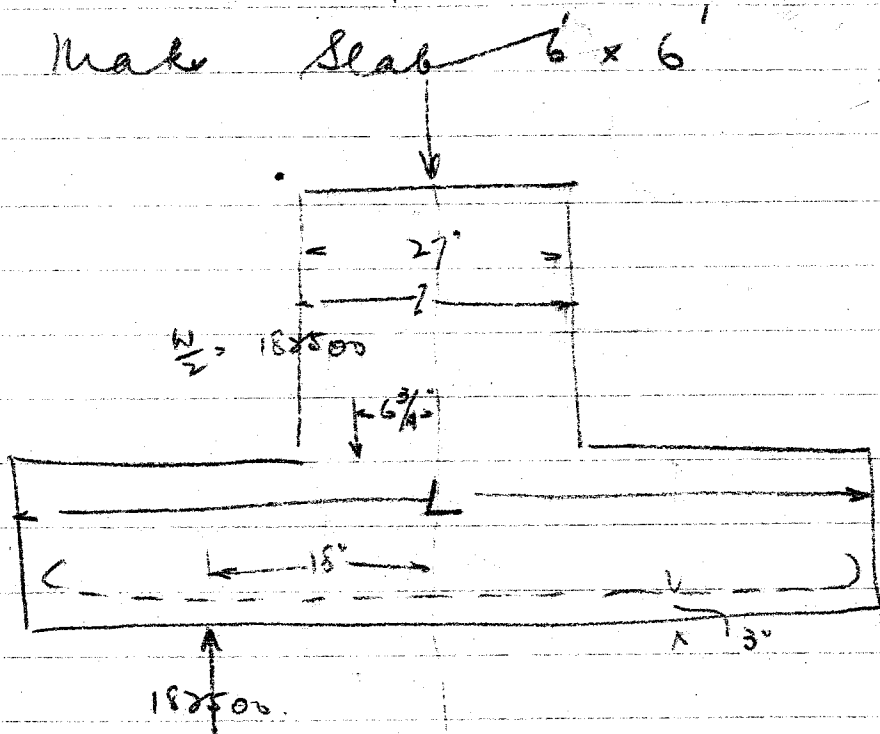 Make Slab 6' x 6'
27"
l
W/2 = 182500
6 3/4"
L
18"
3"
182500.